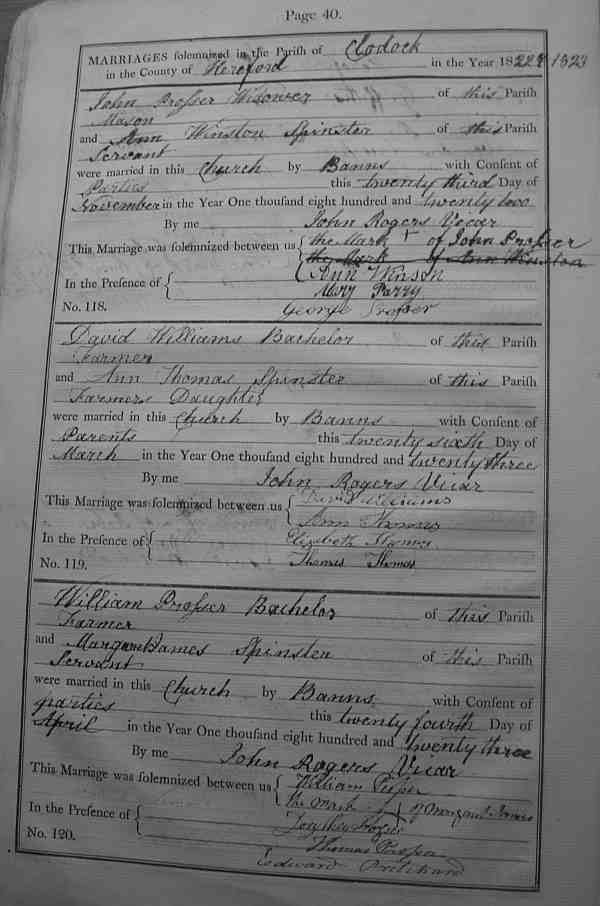 Page 40.
MARRIAGES solemnized in the Parish of Clodock
in the County of Hereford in the Year 1822 & 1823
John Prosser Widower of this Parish
Mason
and Ann Winston Spinster of this Parish
Servant
were married in this Church by Banns with Consent of
Parties this twenty third Day of
November in the Year One thousand eight hundred and twenty two
By me John Rogers Vicar
This Marriage was solemnized between us { the Mark + of John Prosser
the Mark of Ann Winston
Ann Winson
In the Presence of { Mary Parry
George Prosser
No. 118.
David Williams Bachelor of this Parish
Farmer
and Ann Thomas Spinster of this Parish
Farmers Daughter
were married in this Church by Banns with Consent of
Parents this twenty sixth Day of
March in the Year One thousand eight hundred and twenty three
By me John Rogers Vicar
This Marriage was solemnized between us { David Williams
Ann Thomas
In the Presence of { Elizabeth
Thomas Thomas
No. 119.
William Prosser Bachelor of this Parish
Farmer
and Margaret James Spinster of this Parish
Servant
were married in this Church by Banns with Consent of
parties this twenty fourth Day of
April in the Year One thousand eight hundred and twenty three
By me John Rogers Vicar
This Marriage was solemnized between us { William
the mark + of Margaret James
In the Presence of {
Thomas
Edward Pritchard
No. 120.